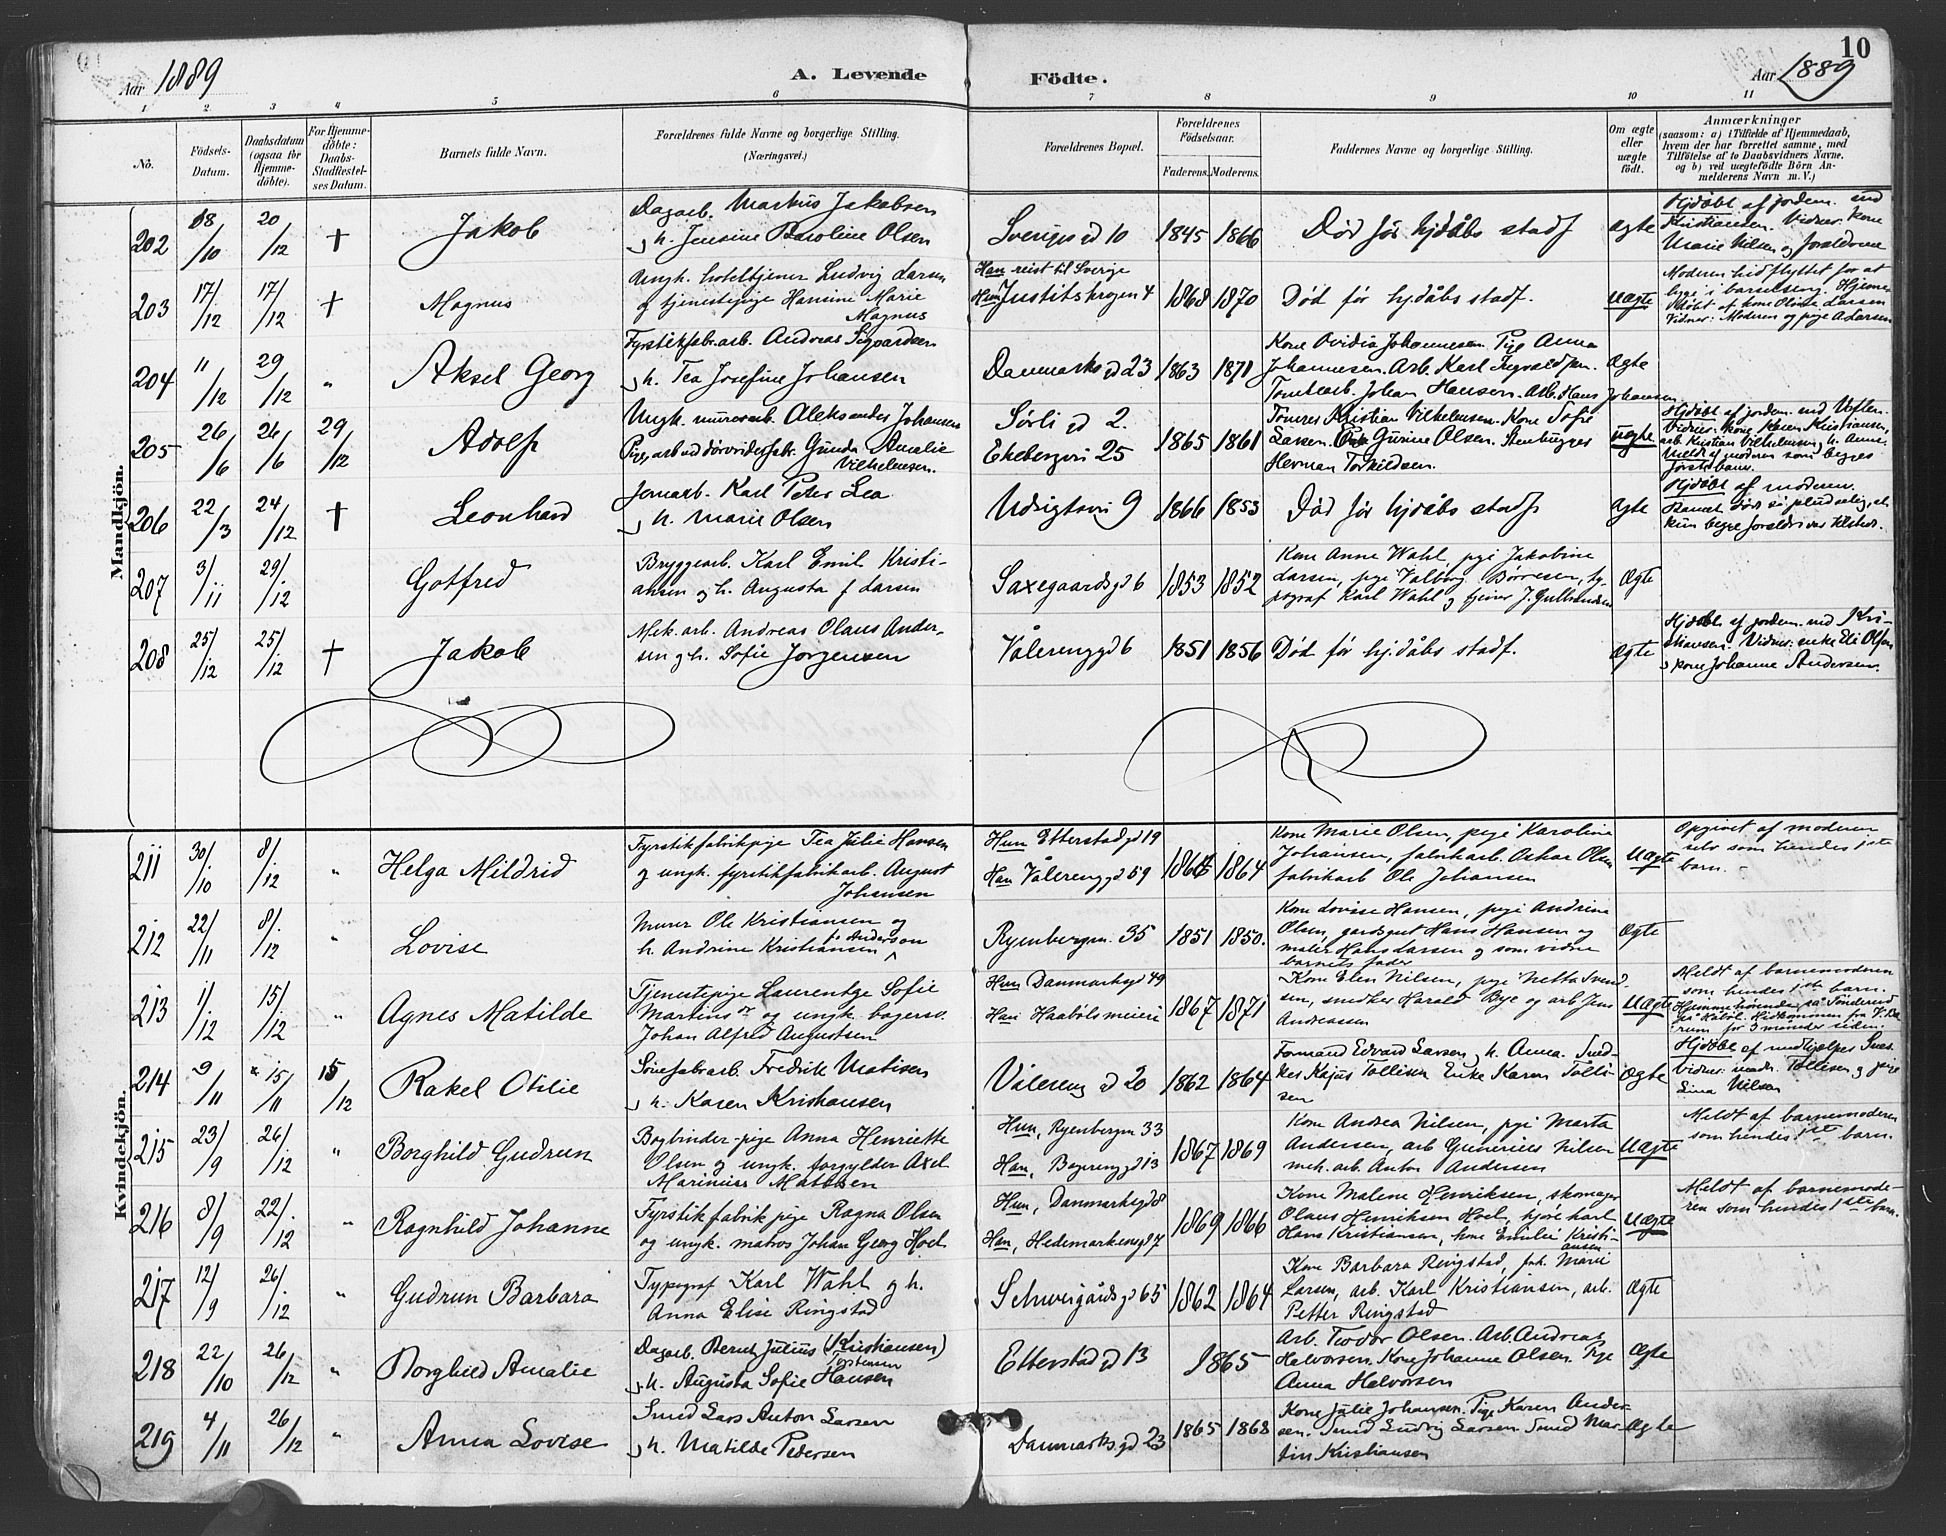 Aar 1889
A. Levende
Födte.
Aar 1889
10
1 2 3 4 5 6 7 8 9 10 11
No.
Födsels-Datum.
Daabsdatum (ogsaa for Hjemme-döbte).
For Hjemme-döbte: Daabs-Stadfæstel-ses Datum.
Barnets fulde Navn.
Forældrenes fulde Navne og borgerlige Stilling.
(Næringsvei.)
Forældrenes Bopæl.
Forældrenes Födselsaar.
Faderens. Moderens.
Faddernes Navne og borgerlige Stilling.
Om ægte eller uægte födt.
Anmærkninger
(saasom: a) i Tilfælde af Hjemmedaab, hvem der har forrettet samme, med Tilföielse af to Daabsvidners Navne. og b) ved uægtefödte Börn An-melderens Navn m. V.)
Mandkjön.
202 18/10 20/12 † Jakob
Dagarb. Markus Jakobsen
og h. Jensine Karoline Olsen
Sverigesgd 10 1845 1866 Död för hjdåbs stadf Ægte
Hjdöbt af jordem. md
Kristiansen. Vidner: kone
Marie Nilsen og foraldrene
203 17/12 17/12 † Magnus
Ungk. hoteltjener Ludvig Larsen
og tjenestepige Hansine Marie
Magnus
Han reist til Sverige
Hun Justitskrogen 4 1868 1870 Död för hjdåbs stadf. Uægte
Moderen hidflyttet for at
ligge i barselseng. Hjemme
döbt af kone Oline Larsen
Vidner: Moderen og pige A. Larsen
204 11/12 29/12 " Aksel Georg
Fyrstikfabr.arb. Andreas Sigvardsen
og h. Tea Josefine Johansen
Danmarksgd 23 1863 1871
Kone Ovidia Johannesen. Pige Anna
Johannesen. Arb. Karl Trygvald
Tomtearb. Johan Hansen. Arb. Hans Johansen
Ægte
205 26/6 26/6 29/12 Adolf
Ungk. murerarb. Aleksander Johansen
Pige, arb. ved Gunda Amalie
Vilhelmsen.
Sörligd 2.
Ekebergvei 25 1865 1861
Kristian Vilhelmsen. Kone Sofie
Larsen. Gurine Olsen. Stenhugger
Herman Torkildsen.
uægte
Hjdöbt af jordem. md
Vidner: kone Karen Kristiansen,
arb. Kristian Vilhelmsen, h. Anne.
Meldt af moderen som begges
förste barn.
206 22/3 24/12 † Leonhard
Jernarb. Karl Peter Lea
og h. Marie Olsen
Udsigtsvei 9 1866 1853 Död för hjdåbs stadf Ægte
Hjdöbt af moderen.
Barnet döde så pludselig, at
kun begge foraldre var tilstede.
207 3/11 29/12 Gotfred
Bryggearb. Karl Emil Kristi-
ansen og h. Augusta f Larsen
Saxegaardsgd 6 1853 1852
Kone Anne Wahl, pige Jakobine
Larsen, pige Valborg Börresen, ty-
pograf Karl Wahl og tjener J. Gulbrandsen
Ægte
208 25/12 25/12 † Jakob
Mek. arb. Andreas Olaus Ander-
sen og h. Sofie Jorgensen
Vålerenggd 6 1851 1856 Död för hjdåbs stadf. Ægte
Hjdöbt af jordem. md Kri-
stiansen. Vidner: enke Olsen
og kone Johanne Andersen.
Kvindekjön.
211 30/10 8/12 " Helga Mildrid
Fyrstikfabrikpige Tea Julie Hansen
og ungk. fyrstikfabrikarb. August
Johansen
Hun Etterstadgd 19
Han Vålerenggd 59 1864 1864
Kone Marie Olsen, pige Karoline
Johansen, fabrikarb. Oskar Olsen
fabrikarb Ole Johansen
Uægte
Opgivet af moderen
selv som hendes 1ste
barn.
212 22/11 8/12 " Lovise
Murer Ole Kristiansen og
h. Andrine Kristiansen f. Anderson
Ryenbergvn. 35 1851 1850.
Kone Lovise Hansen, pige Andrine
Olsen, gardsgut Hans Hansen og
maler Hans Larsen og som vidne
barnets fader
Ægte
213 1/12 15/12 " Agnes Matilde
Tjenestepige Laurentze Sofie
Martinsdr og ungk. bagersv.
Johan Alfred Augustsen
Hun Danmarksgd 49
Han Haabölsmeieri 1867 1871
Kone Elen Nilsen, pige Netta Svend-
sen, snedker Harald Bye og arb Jens
Andreassen
Uægte
Meldt af barnemoderen
som hendes 1ste barn.
Hjemmehörende på Tönderud
på Haböl. Hidkommen fra
for 3 måneder siden.
214 9/11 15/11 15/12 Rakel Otilie
Fredrik Matisen
og h. Karen Kristiansen
Vålerenggd 20 1862 1864
Formand Edvard Larsen og h. Anna. Smed-
Kajus Tollisen Enke Karen Tolli-
sen
Ægte
Hjdöbt af nödhjælper Snes.
Vidner: Tollisen og pige
Lina Nilsen
215 23/9 26/12 " Borghild Gudrun
Bogbinder-pige Anna Henriette
Olsen og ungk. forgylder Axel
Marinius Matisen
Hun, Ryenbergvn 33
Han, Bogerenggd 13 1867 1869
Kone Andrea Nilsen, pige Marta
Andersen, arb Gunerius Nilsen
mek. arb. Anton Andersen
Uægte
Meldt af barnemoderen
som hendes 1ste barn.
216 8/9 22/12 " Ragnhild Johanne
Fyrstikfabrik pige Ragna Olsen
og ungk. matros Johan Georg Hoel
Hun, Danmarksgd 8
Han, Hedemarkensgd 7 1869 1866
Kone Malene Henriksen, skomager
Olaus Henriksen Hoel, kjörekarl
Hans Kristiansen, kone Emilie Kristi-
ansen
Uægte
Meldt af barnemode-
ren som hendes 1ste barn.
217 12/9 26/12 " Gudrun Barbara
Typograf Karl Wahl og h.
Anna Elise Ringstad
Schweigårdsgd 65 1862 1864
Kone Barbara Ringstad, frk. Marie
Larsen, arb. Karl Kristiansen, arb.
Petter Ringstad
Ægte
218 22/10 26/12 " Borghild Amalie
Dagarb. Bernt Julius (Kristiansen)
Torstensen
og h. Augusta Sofie Hansen
Etterstadgd 13 1865
Arb. Teodor Olsen. Arb. Andreas
Halvorsen. Kone Johanne Olsen. Pige
Anna Halvorsen
Ægte
219 4/11 26/12 " Anna Lovise
Smed Lars Anton Larsen
og h. Matilde Pedersen
Danmarksgd 23 1865 1868
Kone Julie Johansen. Pige Karen Ander-
sen. Smed Ludvig Larsen. Smed Mar-
tin Kristiansen
Ægte